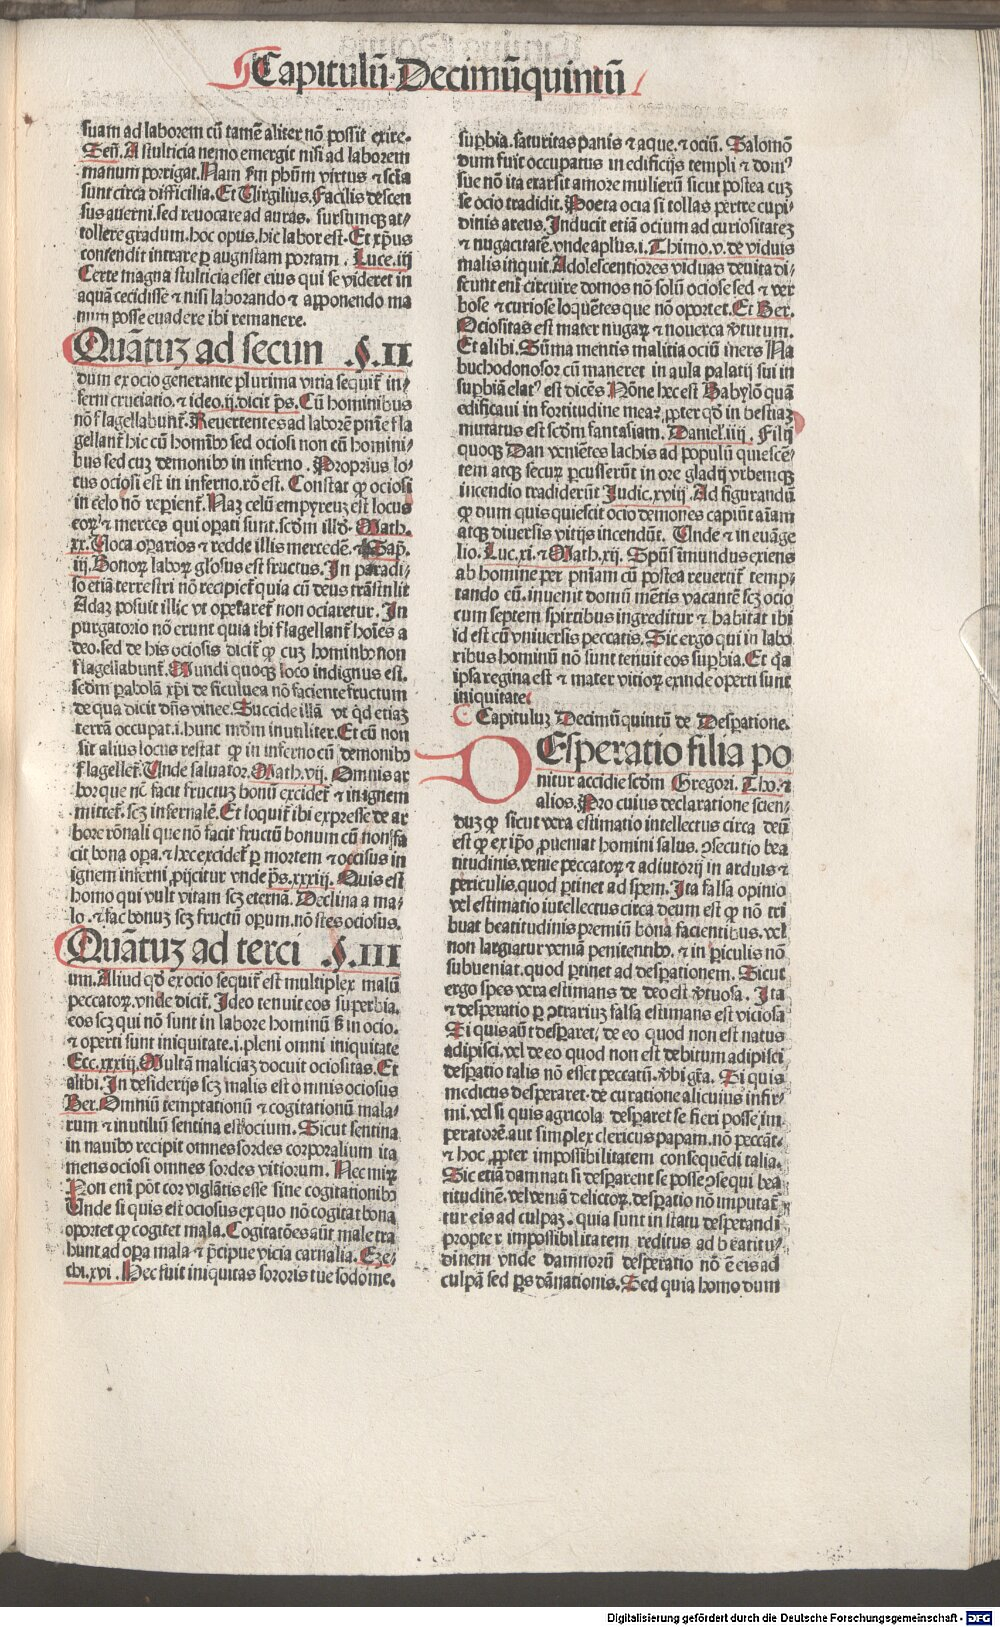 Capitulū Decimūquintū
suam ad laborem cū tamē aliter nō possit exire.
Señ. A stulticia nemo emergit nisi ad laborem
manum porrigat. Nam ẜm phūm virtus ⁊ scīa
sunt circa difficilia. Et Virgilius. Facilis descen
sus auerni. sed reuocare ad auras. sursumqꝫ at-
tollere gradum. hoc opus. hic labor est. Et xp̄us
contendit intrare ꝑ augustam portam. Luce.iij
Certe magna stulticia esset eius qui se videret in
aquā cecidisse ⁊ nisi laborando ⁊ apponendo ma
num posse euadere ibi remanere.
Quātuꝫ ad secun §.II
dum ex ocio generante plurima vitia sequit᷑ in-
ferni cruciatio. ⁊ ideo.ij.dicit p̄s. Cū hominibus
nō flagellabunt᷑. Reuertentes ad laborē pnīe fla
gellant᷑ hic cū hominibꝫ sed ociosi non cū homini-
bus sed cuꝫ demonibꝫ in inferno. Proprius lo-
cus ociosi est in inferno. rō est. Constat ꝙ ociosi
in celo nō reꝑient᷑. Naꝫ celū empyreuꝫ est locus
eoꝝ ⁊ merces qui oꝑati sunt. scd̄m illō. Math.
xx. Voca oꝑarios ⁊ redde illis mercedē. ⁊ Sap̄.
iij. Bonoꝝ laboꝝ glosus est fructus. In paradi-
so etiā terrestri nō recipiet᷑ quia cū deus trāstulit
Adaꝫ posuit illic vt operaret᷑ non ociaretur. In
purgatorio nō erunt quia ibi flagellant᷑ hoīes a
deo. sed de his ociosis dicit᷑ ꝙ cuꝫ hominibꝫ non
flagellabunt᷑. Mundi quoqꝫ loco indignus est.
scd̄m ꝑabolā xp̄i de ficulnea nō faciente fructum
de qua dicit dn̄s vinee. Succide illā vt qd etiaꝫ
terrā occupat. i. hunc mūdm inutiliter. Et cū non
sit alius locus restat ꝙ in inferno cū demonibꝫ
flagellet᷑. Unde saluator. Math.vij. Omnis ar
bor que nō facit fructuꝫ bonū excidet᷑ ⁊ in ignem
mittet᷑. scꝫ infernalē. Et loquit᷑ ibi expresse de ar
bore rōnali que nō facit fructū bonum cū non fa
cit bona oꝑa. ⁊ hec excidet᷑ ꝑ mortem ⁊ occisus in
ignem inferni ꝓijcitur vnde p̄s.xxxiij. Quis est
homo qui vult vitam scꝫ eternā. Declina a ma-
lo. ⁊ fac bonuꝫ scꝫ fructū oꝑum. nō stes ociosus.
Quātuꝫ ad terci §.III
um. Aliud qd̄ ex ocio sequit᷑ est multiplex malū
peccatoꝝ. vnde dicit᷑. Ideo tenuit eos superbia.
eos scꝫ qui nō sunt in labore hominū ẜꝫ in ocio.
⁊ operti sunt iniquitate. i. pleni omni iniquitate
Ecc.xxxiij. Multā maliciaꝫ docuit ociositas. Et
alibi. In desiderijs scꝫ malis est omnis ociosus
Ber. Omniū temptationū ⁊ cogitationū mala-
rum ⁊ inutiliū sentina est ocium. Sicut sentina
in nauibꝫ recipit omnes sordes corporalium ita
mens ociosi omnes sordes vitiorum. Nec miꝝ
Non enī pōt cor vigilātis esse sine cogitationibꝫ
Unde si quis est ociosus ex quo nō cogitat bona
oportet ꝙ cogitet mala. Cogitatōes aūt male tra
hunt ad oꝑa mala ⁊ p̄cipue vicia carnalia. Eze-
chi.xvi. Hec fuit iniquitas sororis tue sodome.
suꝑbia. saturitas panis ⁊ aque. ⁊ ociū. Salomō
dum fuit occupatus in edificijs templi ⁊ domꝰ
sue nō ita exarsit amore mulierū sicut postea cuꝫ
se ocio tradidit. Poeta ocia si tollas periere cupi-
dinis arcus. Inducit etiā ocium ad curiositateꝫ
⁊ nugacitatē. vnde aplus.i. Thimo.v. de viduis
malis inquit. Adolescentiores viduas deuita di-
scunt enī circuire domos nō solū ociose sed ⁊ ver
bose ⁊ curiose loquētes que nō oportet. Et Ber.
Ociositas est mater nugaꝝ ⁊ nouerca v̄tutum.
Et alibi. Sūma mentis malitia ociū iners Na
buchodonosor cū maneret in aula palatij sui in
suꝑbiā elatꝰ est dicēs. Nōne hec est Babylō quā
edificaui in fortitudine meaꝝ. ꝓpter qd̄ in bestiaꝫ
mutatus est scd̄m fantasiam. Daniel.iiij. Filij
quoqꝫ Dan veniētes lachis ad populū quiescē-
tem atqꝫ securꝫ ꝑcusserūt in ore gladij vrbemqꝫ
incendio tradiderūt Judic.xviij. Ad figurandū
ꝙ dum quis quiescit ocio demones capiūt aīam
atqꝫ diuersis vitijs incendūt. Unde ⁊ in euāge
lio. Luc.xi. ⁊ Math.xij. Spūs īmundus exiens
ab homine per pn̄iam cū postea reuertit᷑ temp-
tando eū. inuenit domū mētis vacantē scꝫ ocio
cum septem spiritibus ingreditur ⁊ habitat ibi
id est cū vniuersis peccatis. Sic ergo qui in labo
ribus hominū nō sunt tenuit eos suꝑbia. Et q̄a
ipsa regina est ⁊ mater vitioꝝ exinde operti sunt
iniquitate.
Capituluꝫ Decimūquintū de Desꝑatione.
DEsperatio filia po
nitur accidie scd̄m Gregori. Tho. ⁊
alios. Pro cuius declaratione scien-
duꝫ ꝙ sicut vera estimatio intellectus circa deū
est ꝙ ex ip̄o ꝓueniat homini salus. ꝯsecutio bea
titudinis. venie peccatoꝝ ⁊ adiutorij in arduis ⁊
periculis. quod ꝑtinet ad spem. Ita falsa opinio
vel estimatio iutellectus circa deum est ꝙ nō tri
buat beatitudinis premiū bona facientibus. vel
non largiatur veniā penitentibꝫ. ⁊ in ꝑiculis nō
subueniat. quod ꝑtinet ad desꝑationem. Sicut
ergo spes vera estimans de deo est v̄tuosa. Ita
⁊ desperatio ꝑ ꝯtrariuꝫ falsa estimans est viciosa
Si quis aūt desꝑaret. de eo quod non est natus
adipisci. vel de eo quod non est debitum adipisci
desꝑatio talis nō esset peccatū. v̄bi gr̄a. Si quis
medicus desperaret de curatione alicuius infir-
mi. vel si quis agricola desꝑaret se fieri posse im
peratorē. aut simplex clericus papam. nō peccāt.
⁊ hoc ꝓpter impossibilitatem consequēdi talia.
Sic etiā damnati si desꝑarent se posse ꝯsequi bea
titudinē. vel veniā delictoꝝ. desꝑatio nō imputat᷑
tur eis ad culpaꝫ. quia sunt in statu desperandi
propter impossibilitatem reditus ad beatitu-
dinem vnde damnorū desperatio nō ē eis ad
culpā sed ꝑs dānationis. Sed quia homo dum
Digitalisierung gefördert durch die Deutsche Forschungsgemeinschaft - DFG